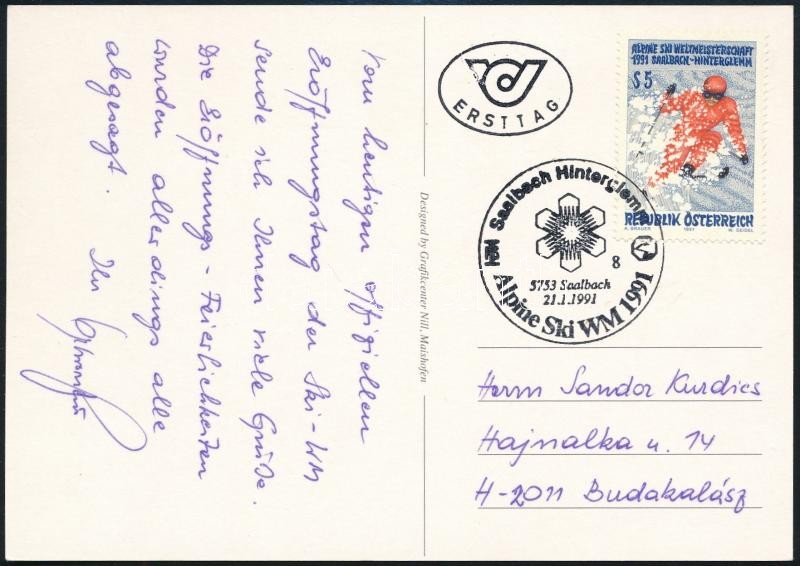 Vom heutigen offiziellen
Eröffnungstag der Ski-WM
sende ich Ihnen viele Grüße.
Die Eröffnungs-Feierlichkeiten
wurden allerdings alle
abgesagt. Ihr
Designed by Grafikcenter Nill, Maishofen
ERSTTAG
ALPINE SKI WELTMEISTERSCHAFT
1991 SAALBACH-HINTERGLEMM
S 5
REPUBLIK ÖSTERREICH
A. BRAUER 1991 W. SEIDEL
Saalbach Hinterglemm
8
5753 Saalbach
21.1.1991
Alpine Ski WM 1991
Herrn Sandor Kurdics
Hajnalka u. 14
H-2011 Budakalász